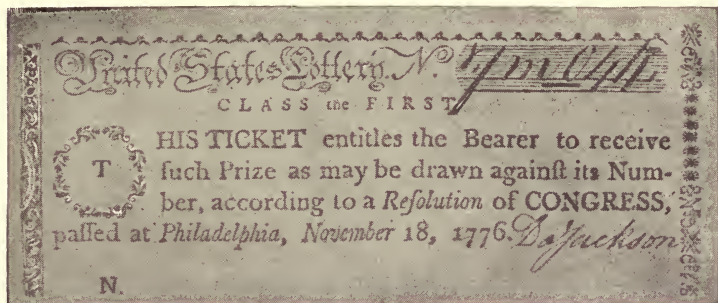 United States Lottery. Nº.
CLASS the FIRST
THIS TICKET entitles the Bearer to receive
ſuch Prize as may be drawn againſt its Num-
ber, according to a Reſolution of CONGRESS,
paſſed at Philadelphia, November 18, 1776. Dd Jackson
N.